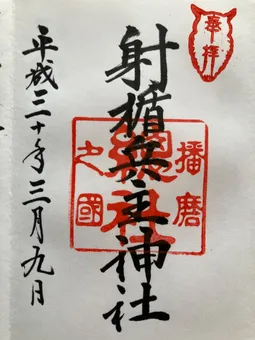 奉拝
射楯兵主神社
播磨
総社
之國
平成三十年三月九日